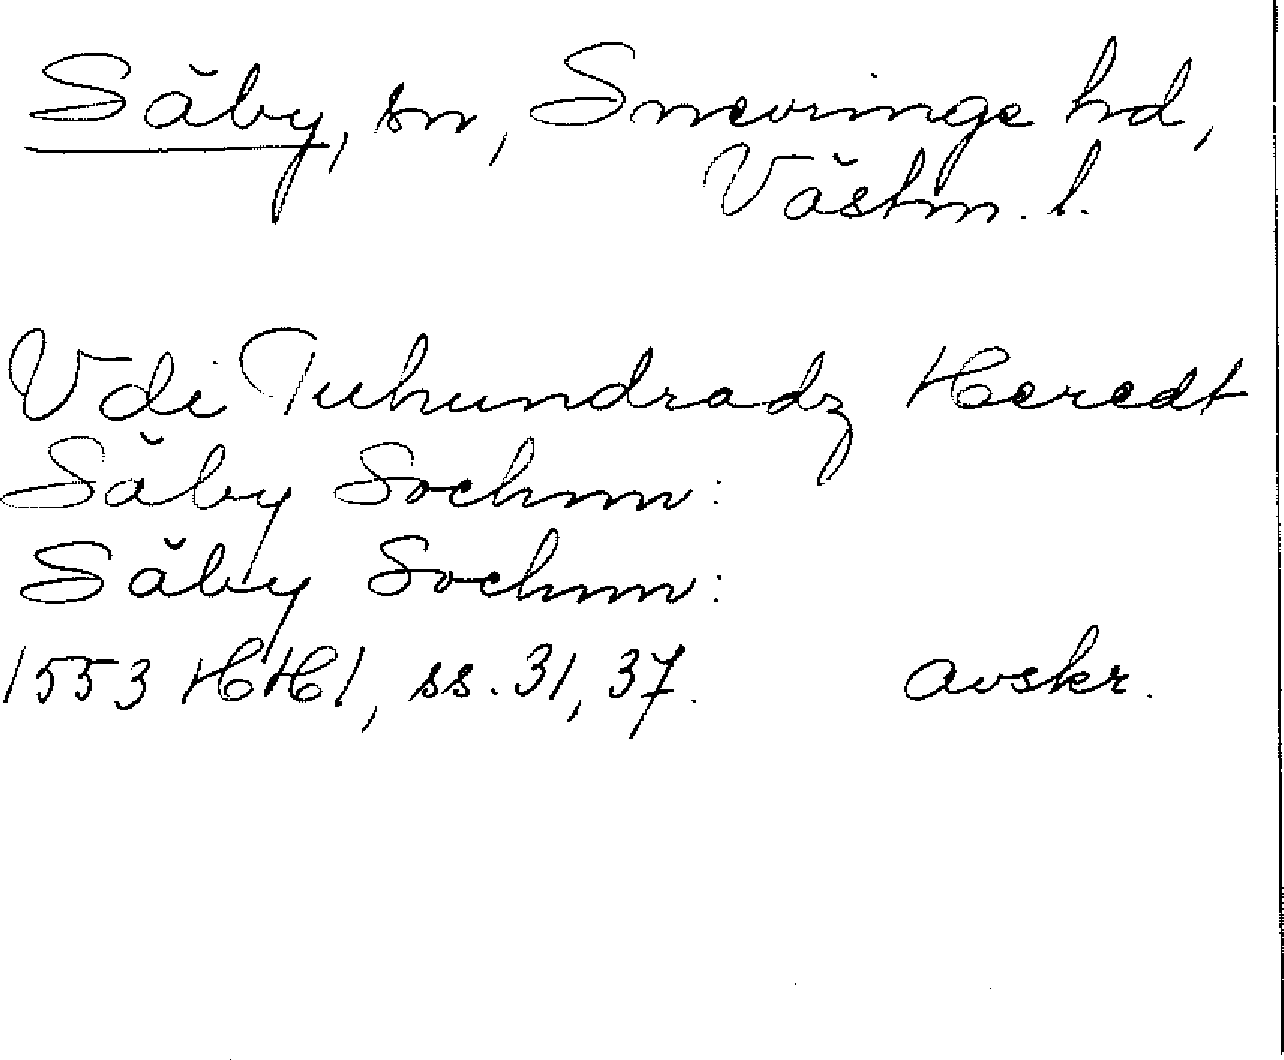 Säby, sn, Snevringe hd,
Västm. l.
Vdi Tuhundradz Heredt
Säby Sochnn:
Säby Sochnn:
1553 HH1, ss. 31, 37. avskr.